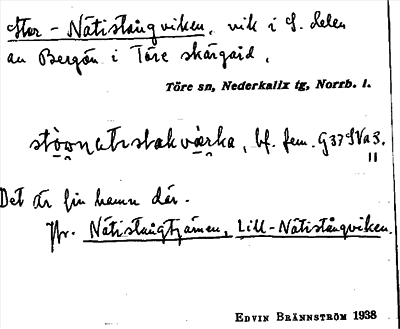 Stor-Nätistångviken, vik i S. delen
av Bergön i Töre skärgård.
Töre sn, Nederkalix tg, Norrb. l.
bf. fem. G37SVa3.
11
Det är fin hamn där.
Jfr. Nätistångtjärnen, Lill-Nätistångviken.
EDVIN BRÄNNSTRÖM 1938